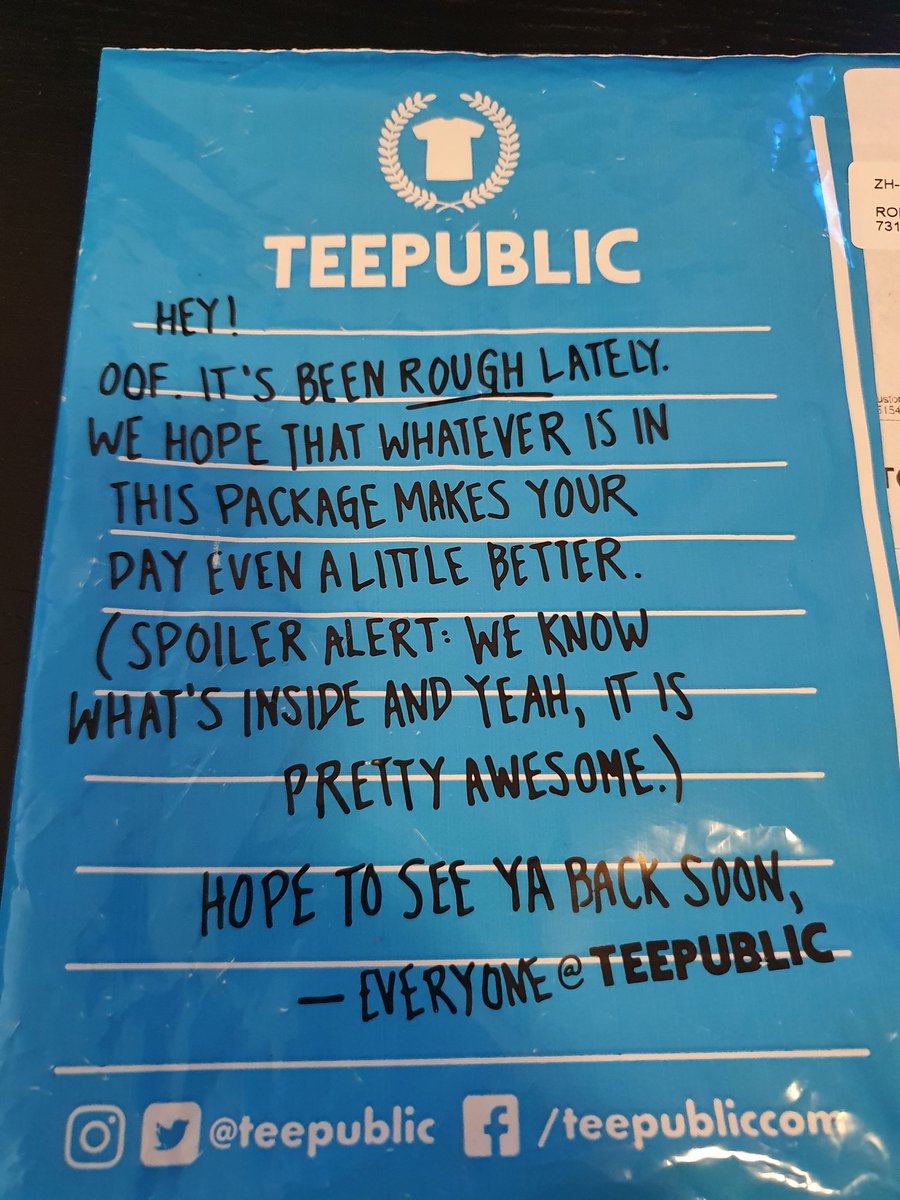 TEEPUBLIC
HEY!
OOF. IT'S BEEN ROUGH LATELY.
WE HOPE THAT WHATEVER IS IN
THIS PACKAGE MAKES YOUR
DAY EVEN A LITTLE BETTER.
(SPOILER ALERT: WE KNOW
WHAT'S INSIDE AND YEAH, IT IS
PRETTY AWESOME.)
HOPE TO SEE YA BACK SOON,
— EVERYONE @ TEEPUBLIC
@teepublic /teepubliccom
ZH-
731